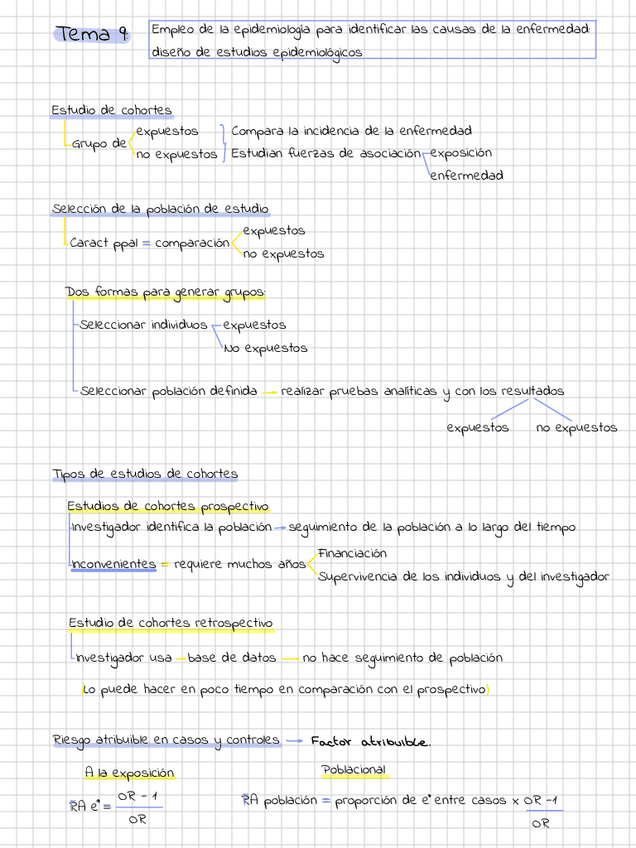 Tema 9:
Empleo de la epidemiología para identificar las causas de la enfermedad:
diseño de estudios epidemiológicos
Estudio de cohortes
Grupo de
expuestos
no expuestos
Compara la incidencia de la enfermedad
Estudian fuerzas de asociación
exposición
enfermedad
Selección de la población de estudio
Caract ppal = comparación
expuestos
no expuestos
Dos formas para generar grupos:
Seleccionar individuos
expuestos
No expuestos
Seleccionar población definida → realizar pruebas analíticas y con los resultados
expuestos no expuestos
Tipos de estudios de cohortes
Estudios de cohortes prospectivo
Investigador identifica la población → seguimiento de la población a lo largo del tiempo
Inconvenientes = requiere muchos años
Financiación
Supervivencia de los individuos y del investigador
Estudio de cohortes retrospectivo
Investigador usa — base de datos — no hace seguimiento de población
(Lo puede hacer en poco tiempo en comparación con el prospectivo)
Riesgo atribuible en casos y controles → Factor atribuible.
A la exposición
Poblacional
RA e⁺ = OR - 1
OR
RA población = proporción de e⁺ entre casos x OR -1
OR